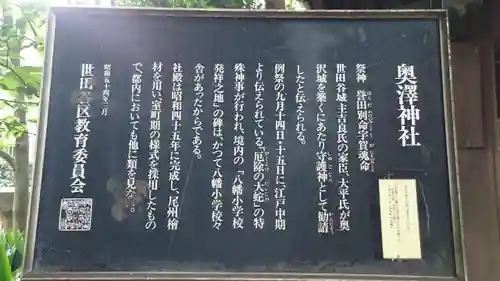 奥澤神社
祭神 誉田別命宇賀魂命
世田谷城主吉良氏の家臣、大平氏が奥
沢城を築くにあたり守護神として勧請
したと伝えられる。
例祭の九月十四日十五日に、江戸中期
より伝えられている「厄除の大蛇」の特
殊神事が行われ、境内の「八幡小学校
発祥之地」の碑は、かつて八幡小学校々
舎があったからである。
社殿は昭和四十五年に完成し、尾州檜
材を用い、室町期の様式を採用したもの
で、都内においても他に類を見
昭和五十四年二月
世田谷区教育委員会